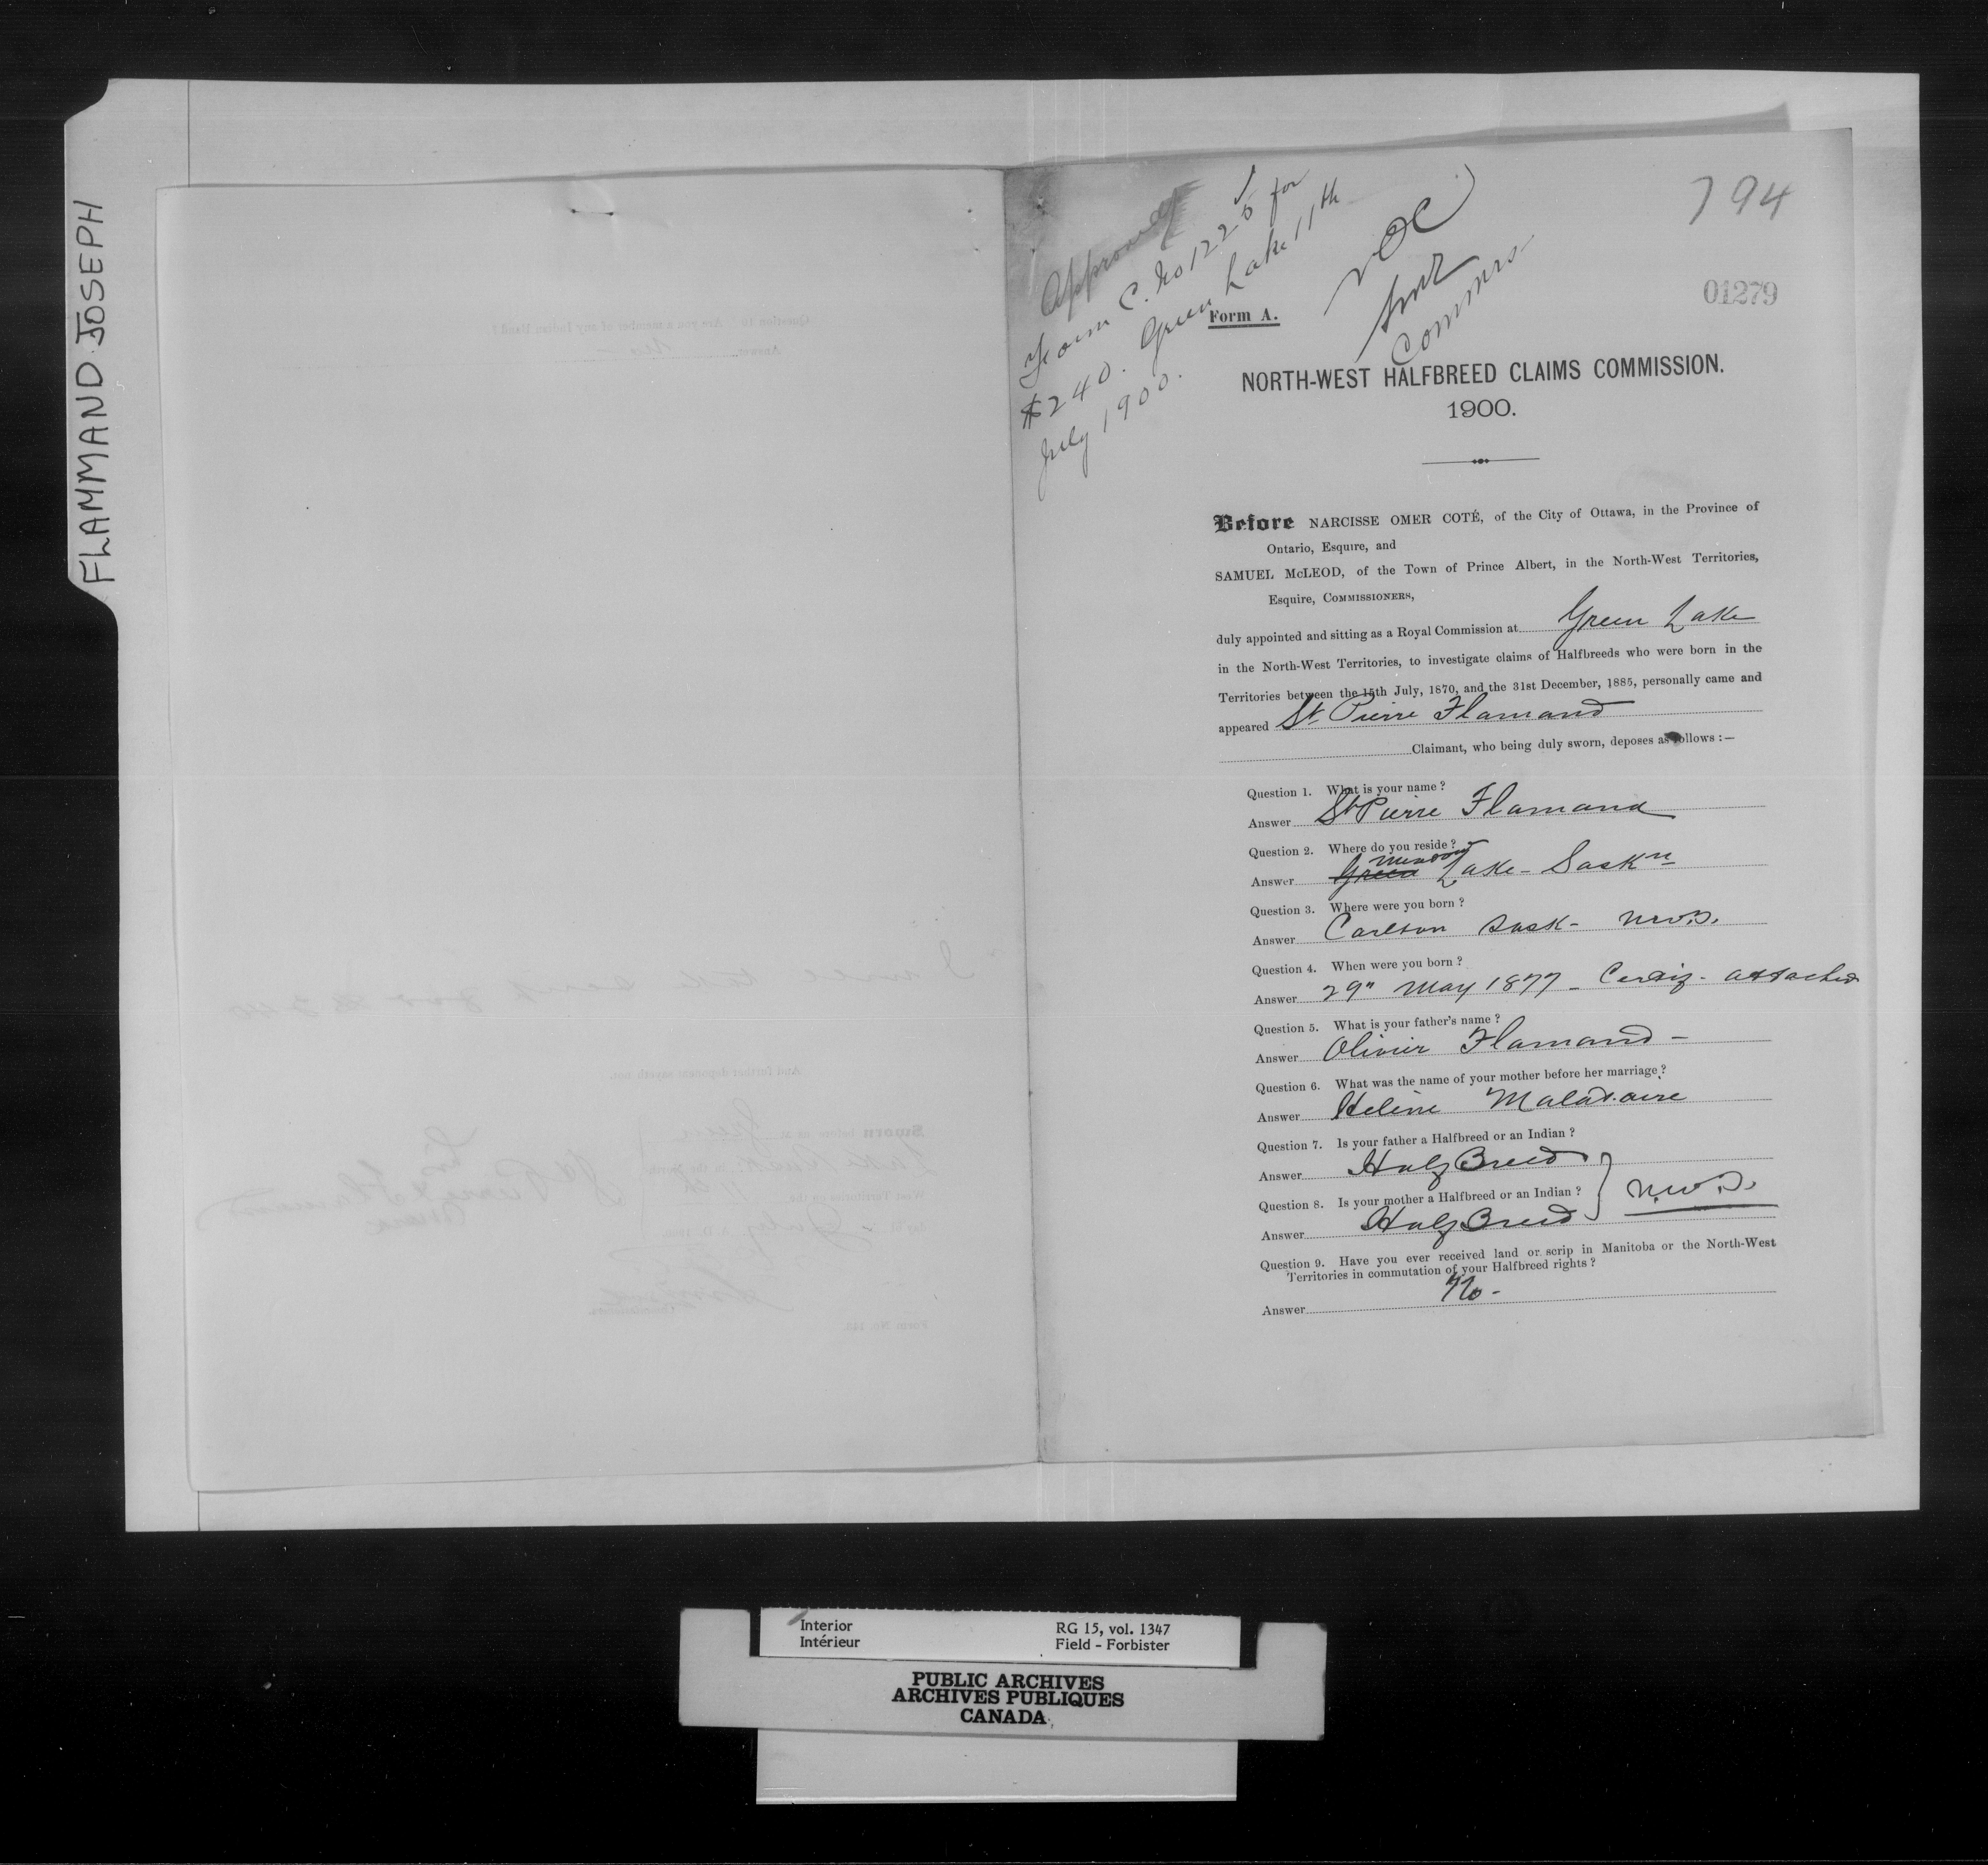 FLAMMAND JOSEPH
Approved
Form C. No 1225 for
$240. Green Lake 11th
July 1900.
NOC
Commrs
794
01279
Form A.
NORTH-WEST HALFBREED CLAIMS COMMISSION.
1900.
Before NARCISSE OMER COTÉ, of the City of Ottawa, in the Province of
Ontario, Esquire, and
SAMUEL McLEOD, of the Town of Prince Albert, in the North-West Territories,
Esquire, COMMISSIONERS,
duly appointed and sitting as a Royal Commission at Green Lake
in the North-West Territories, to investigate claims of Halfbreeds who were born in the
Territories between the 15th July, 1870, and the 31st December, 1885, personally came and
appeared St. Pierre Flamand
Claimant, who being duly sworn, deposes as follows :—
Question 1. What is your name ?
Answer St Pierre Flamand
Question 2. Where do you reside ?
Meadow
Answer Green Lake - Saskn
Question 3. Where were you born ?
Answer Carlton Sask - N.W.T.
Question 4. When were you born ?
Answer 29" May 1877 - Certif. attached
Question 5. What is your father's name ?
Answer Olivier Flamand -
Question 6. What was the name of your mother before her marriage ?
Answer Helène
Question 7. Is your father a Halfbreed or an Indian ?
Answer Half Breed
Question 8. Is your mother a Halfbreed or an Indian ? } N.W.T.
Answer Half Breed
Question 9. Have you ever received land or scrip in Manitoba or the North-West
Territories in commutation of your Halfbreed rights ?
Answer No -
Interior
Intérieur
RG 15, vol. 1347
Field - Forbister
PUBLIC ARCHIVES
ARCHIVES PUBLIQUES
CANADA